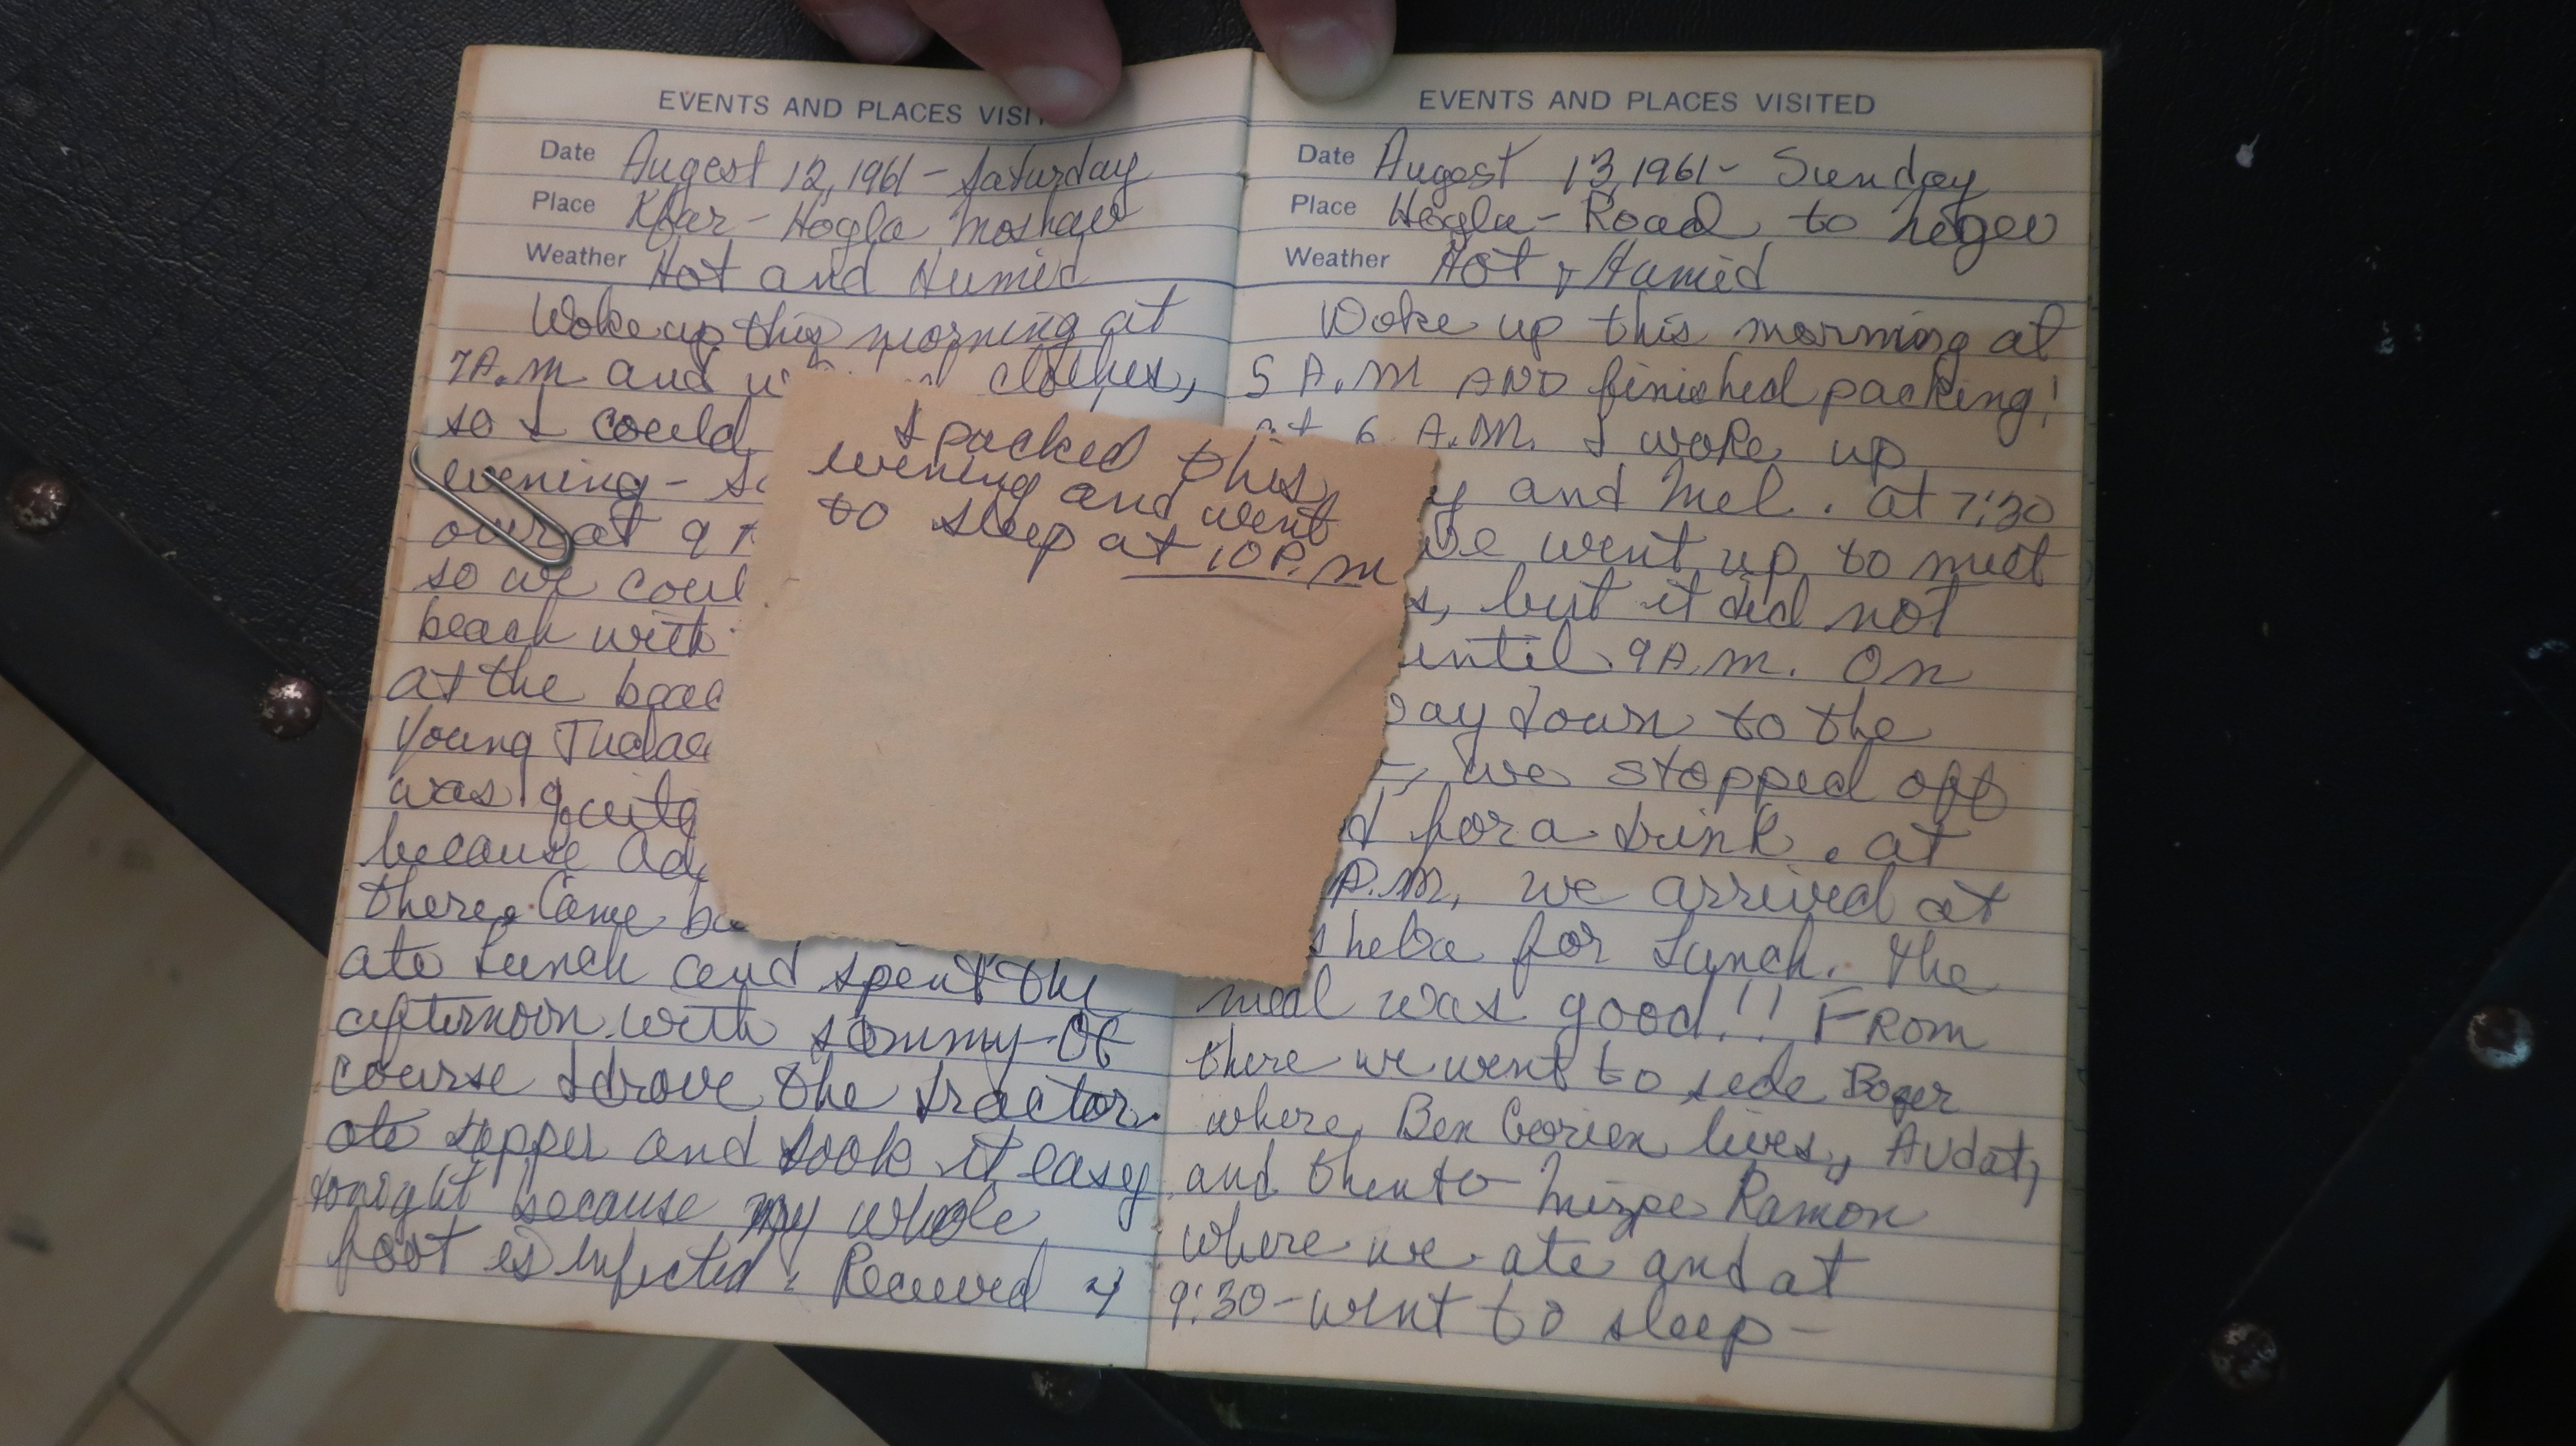 EVENTS AND PLACES VISI
Date Augest 12, 1961 - Saturday
Place Kfar - Hogla Moshav
Weather Hot and Humid
Woke up this morning at
7 A.M and clothes,
so I could
evening - so
over at 9
so we coul
beach with
at the beac
Young Judae
was quite
because
there. Came ba
ate lunch and spent the
afternoon with Sommy - Of
course I drove the tractor.
ate supper and took it easy
tonight because my whole
foot is infected. Received 4
I packed this
evening and went
to sleep at 10 P.M
EVENTS AND PLACES VISITED
Date August 13, 1961 - Sunday
Place Hogla - Road to Negev
Weather Hot & Humid
Woke up this morning at
5 A.M AND finished packing!
at 6 A.M. I woke up
y and Mel. at 7:30
we went up to meet
s, but it did not
until 9 A.M. On
way down to the
, we stopped off
d for a drink. at
P.M, we arrived at
sheba for Lunch. The
meal was good!! FROM
there we went to sede Boqer
where Ben Gorien lives, Avdat,
and then to Mizpe Ramon
where we ate and at
9:30 - went to sleep -